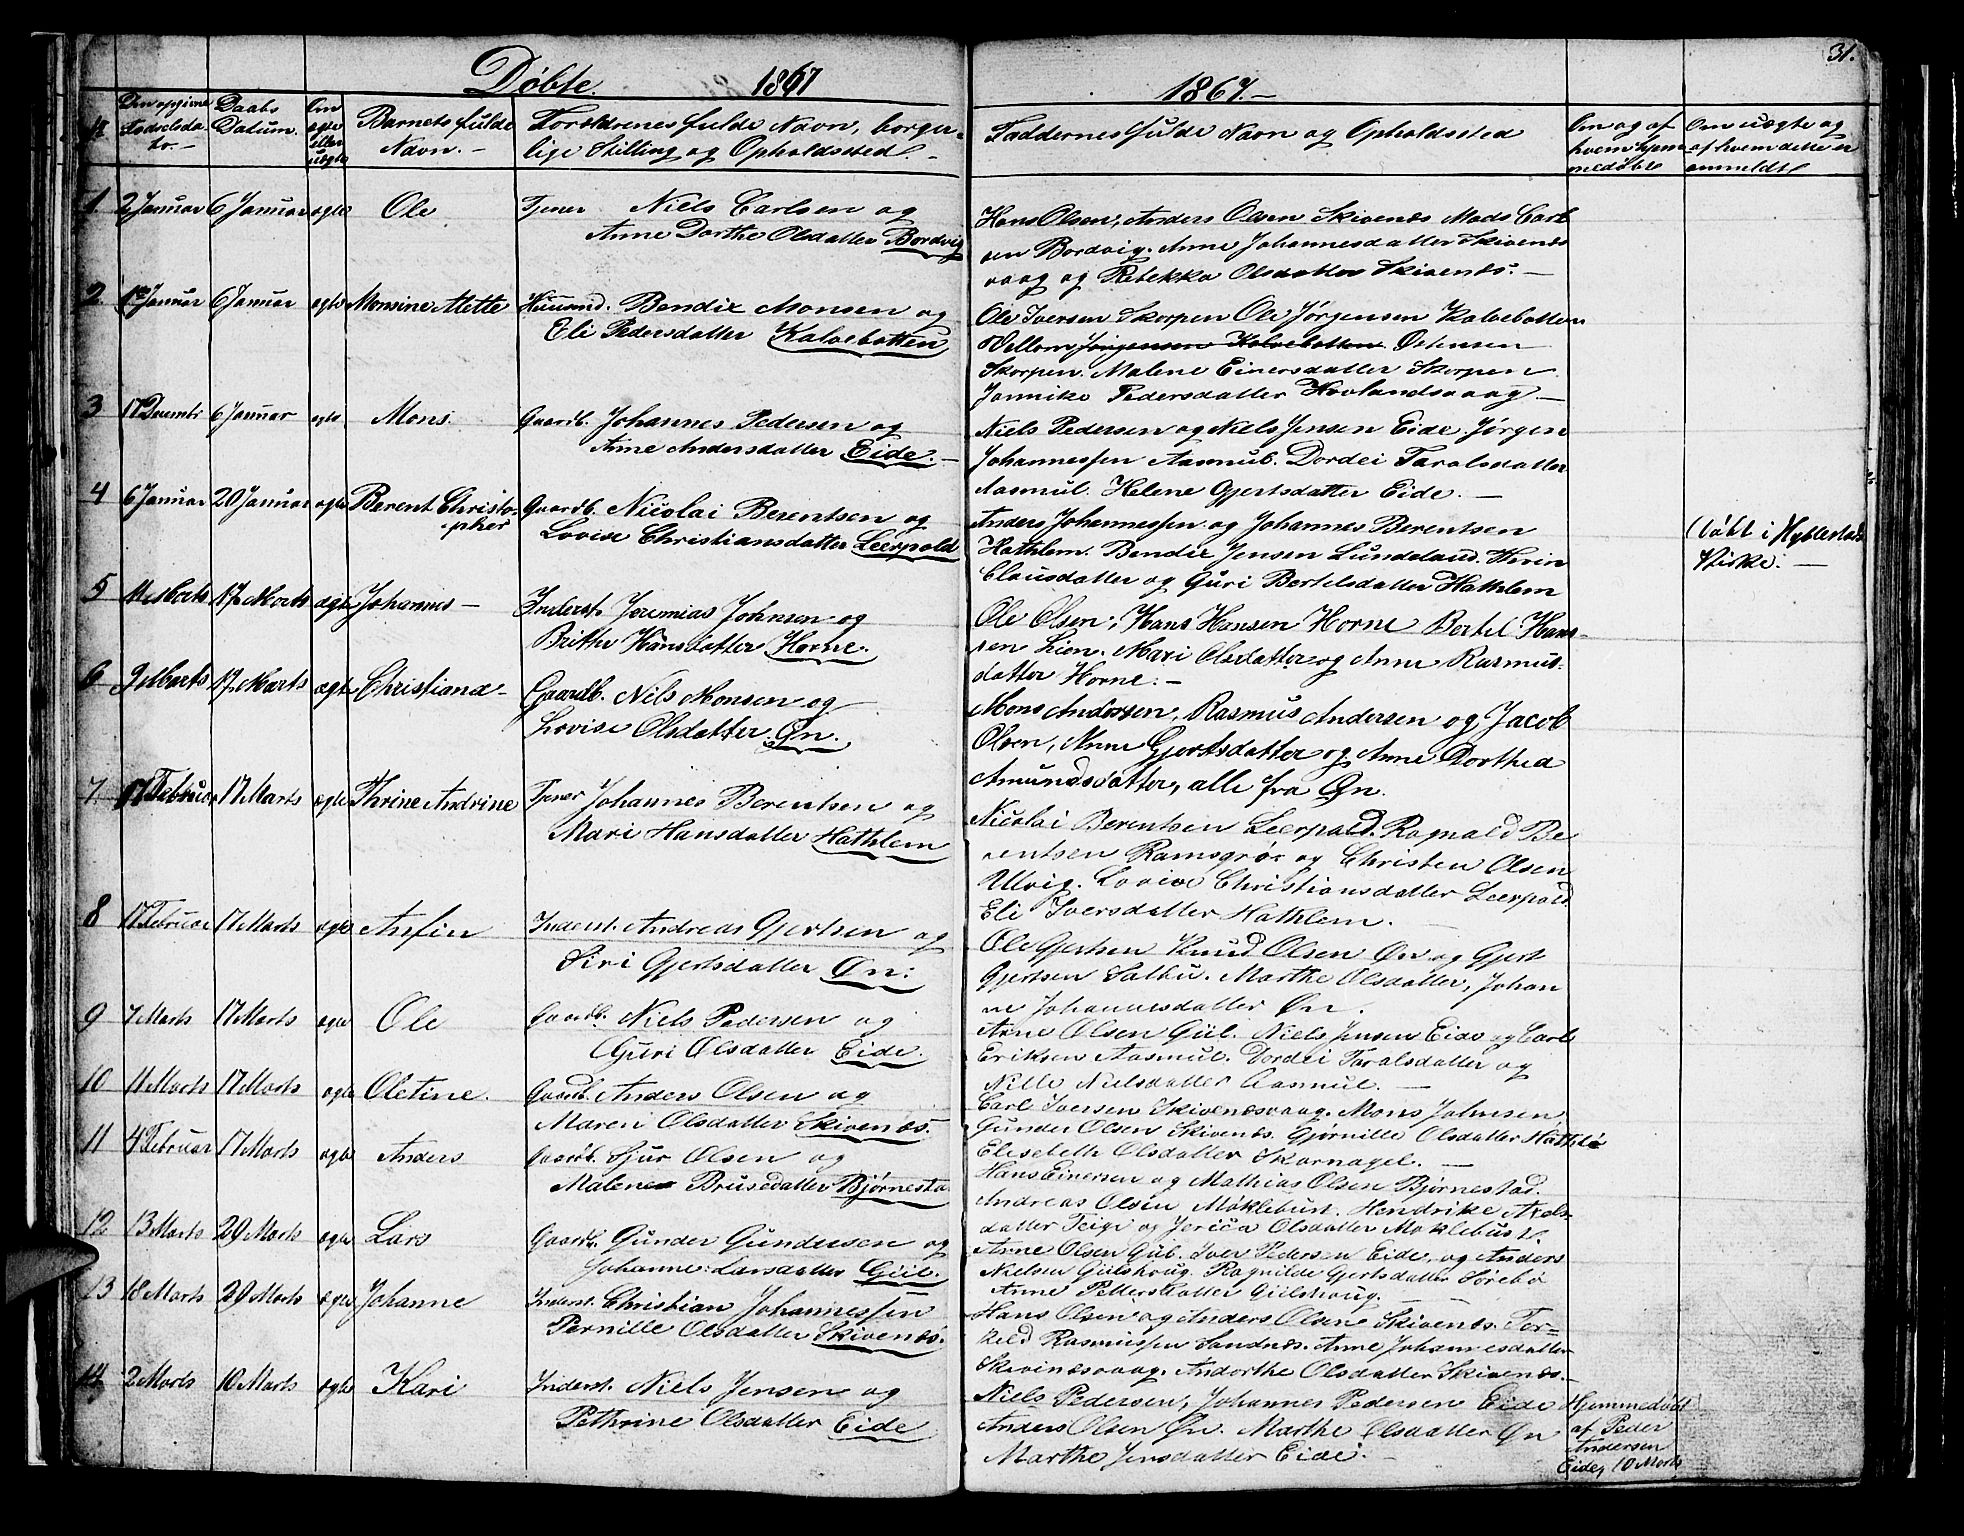 Døbte. 1867
1867.- 31.
No Den opgivne Fødselsdato.- Daabs Datum. Om ægte eller uægte Barnets fulde Navn.- Forældrenes fulde Navn, borgerlige Stilling og Opholdssted.- Faddernes fulde Navn og Opholdssted Om og af hvem hjemmedøbt Om uægte og af hvem dette er anmeldt
1. 2 Januar 6 Januar ægte Ole Tjener Niels Carlsen og
Anne Dorthe Olsdatter Bordvig
Hans Olsen, Anders Olsen Skivenæs Mads Carl
sen Bordvig. Anne Johannesdatter Skivenæs
vaag og Rebekka Olsdatter Skivenæs.-
2. 1 Januar 6 Januar ægte Monsine Mette Huusmd. Bendix Monsen og
Eli Pedersdatter Kalvebotten
Ole Iversen Skorpen Ole Jørgensen Kalvebotten
Villom Jørgensen Kalvebotten Østensen
Skorpen. Malene Einersdatter Skorpen
Jannike Pedersdatter Hovlandsvaag-
3 17 Decembr 6 Januar ægte Mons. Gaardb. Johannes Pedersen og
Anne Andersdatter Eide.-
Niels Pedersen og Niels Jensen Eide. Jørgen
Johannessen Aasmul. Dordei Taralsdatter
Aasmul. Helene Gjertsdatter Eide.-
4 6 Januar 20 Januar ægte Berent Christo-
pher Gaardb. Nicolai Berentsen og
Lovise Christiansdatter Leerpold
Anders Johannessen og Johannes Berentsen
Hathlem. Bendix Jensen Sundeland.
Clausdatter og Guri Bertelsdatter Hathlem
(døbt i Hyllestad
Kirke.-
5 11 Marts 17 Marts ægte Johannes- Inderst. Jeremias Johnsen og
Brithe Hansdatter Horne.
Ole Olsen, Hans Hansen Horne Bertel Hans-
sen Lien. Mari Olsdatter og Anne Rasmus-
datter Horne.-
6 9 Marts 17 Marts ægte Christiane- Gaardb. Niels Monsen og
Lovise Olsdatter Øn.
Mons Andersen, Rasmus Andersen og Jacob
Olsen, Anne Gjertsdatter og Anne Dorthea
Amundsdatter, alle fra Øn.
7 17 Februar 17 Marts ægte Thrine Andrine Tjener Johannes Berentsen og
Mari Hansdatter Hathlem
Nicolai Berentsen Leerpold. Ragnald Be
rentsen Ramsgrør og Christen Olsen
Ulvig. Lovise Christiansdatter Leerpold
Eli Iversdatter Hathlem.
8 17 Februar 17 Marts ægte Anfin Inderst. Andreas Gjertsen og
Siri Gjertsdatter Øn:
Ole Gjertsen Knud Olsen Øn og Gjert
Gjertsen Salbu. Marthe Olsdatter, Johan
ne Johannesdatter Øn.
9 7 Marts 17 Marts ægte Ole Gaardb. Niels Pedersen og
Guri Olsdatter Eide.
Arne Olsen Gül. Niels Jensen Eide og Carl
Eriksen Aasmul. Dordei Taralsdatter og
Nille Nielsdatter Aasmul.-
10 11 Marts 17 Marts ægte Oletine. Gaardb. Anders Olsen og
Maren Olsdatter Skivenæs.
Carl Iversen Skivenæsvaag. Mons Johnsen
Gunder Olsen Skivenæs. Gjørnille Olsdatter Hathle
Elisebeth Olsdatter Skornagel.-
11 4 Februar 17 Marts ægte Anders Gaardb. Sjur Olsen og
Malene Brusedatter Bjørnesta
Hans Einersen og Mathias Olsen Bjørnestad.
Andreas Olsen Møklebust. Hendrikke Axels-
datter Teige og Jerica Olsdatter Møklebust.
12 13 Marts 29 Marts ægte Lars Gaardb. Gunder Gundersen og
Johanne Larsdatter Gül.
Arne Olsen Gül. Iver Pedersen Eide, og Anders
Nielsen Gülshoug. Ragnilde Gjertsdatter Sørebø
Anne Pettersdatter Gülshoug.
13 18 Marts 29 Marts ægte Johanne Inderst. Christian Johannessen
Pernille Olsdatter Skivenæs.
Hans Olsen og Anders Olsen Skivenæs. Ter-
keld Rasmussen Sandnæs. Anne Johannesdatter
Skivinæsvaag. Andorthe Olsdatter Skivenæs.-
14 2 Marts 10 Marts ægte Kari Inderst. Niels Jensen og
Pethrine Olsdatter Eide
Niels Pedersen, Johannes Pedersen Eide
Anders Olsen Øn. Marthe Olsdatter Øn
Marthe Jensdatter Eide.-
Hjemmedøbt
af Peder
Andersen
Eide, 10 Marts